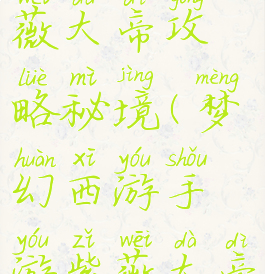 wēi dà dì gōng
薇大帝攻
lüè mì jìng mèng
略秘境(梦
huàn xī yóu shǒu
幻西游手
yóu zǐ wēi dà dì
游紫薇大帝